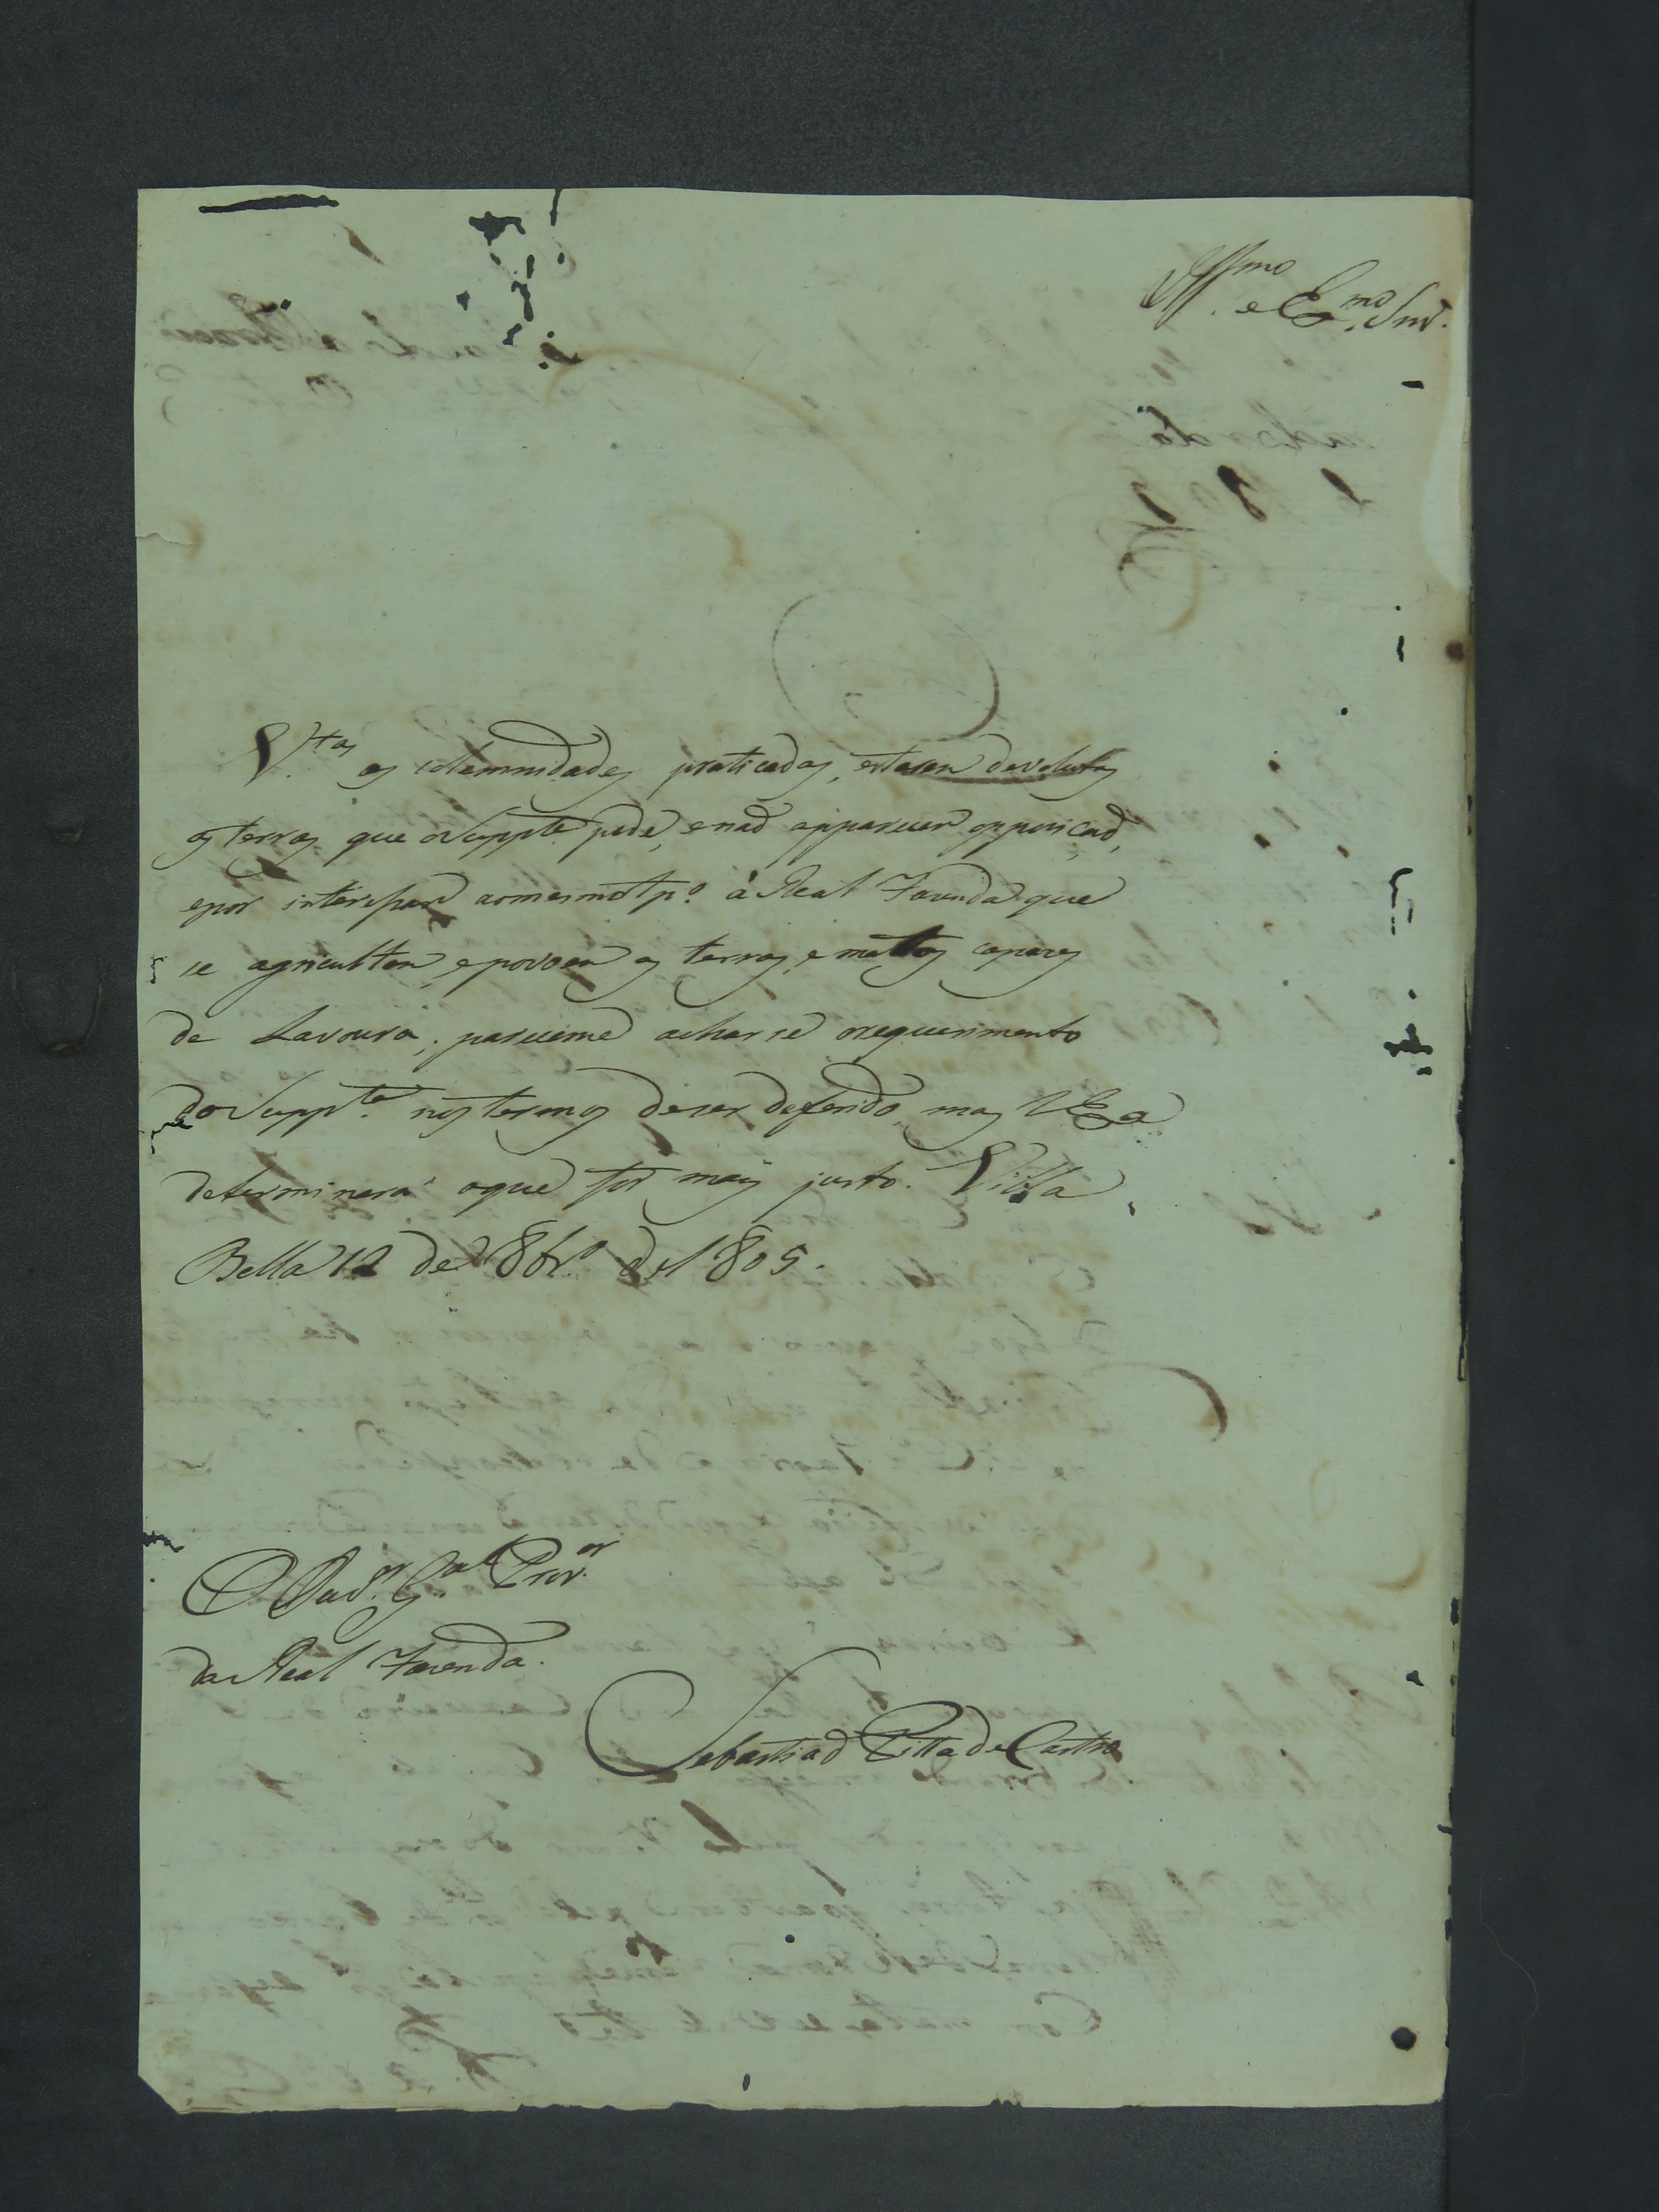 Illmo. e Exmo. Snr.
V.tas as solemnidades praticadas, estarem devolutas
as terras que o Suppte. pede, e naõ apparecer oppoziçaõ,
e por interessar ao mesmo tpo. á Real Fazenda que
se agricultem, e povoem as terras, e mattos capazes
de Lavoura; pareceme achar-se o requerimento
do Suppte. nos termos de ser deferido, mas V Exa
determinará o que for mais justo. Villa
Bella 12 de 8br.o de 1805.
O Ouv.or G.al Prov.or
da Real Fazenda.
Sebastiaõ Pitta de Castro